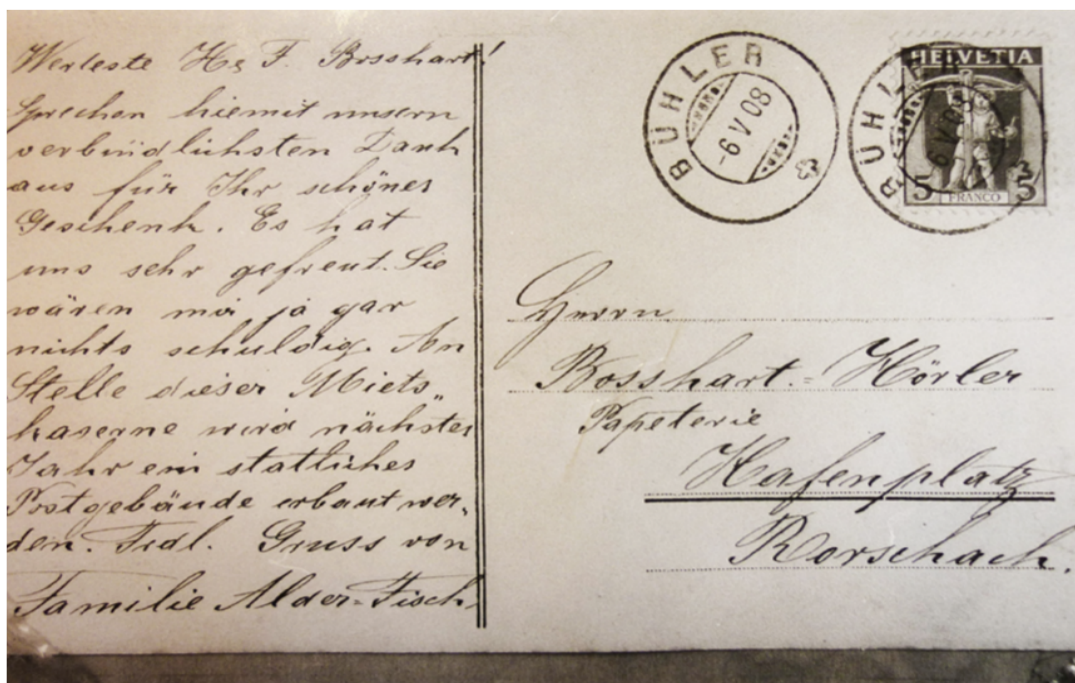 Werteste Hr F. Bosshart!
Sprechen hiemit unsern
verbindlichsten Dank
aus für Ihr schönes
Geschenk. Es hat
uns sehr gefreut. Sie
wären mir ja gar
nichts schuldig. An
Stelle dieser Miets„
kaserne wird nächstes
Jahr ein stattliches
Postgebäude erbaut wer„
den. Frdl. Gruss von
Familie Alder-Fisch
BÜHLER
-6 V 08
BÜHLER
-6 V 08
HELVETIA
5 5
FRANCO
Herrn
Bosshart.=Hörler
Papeterie
Hafenplatz
Rorschach.